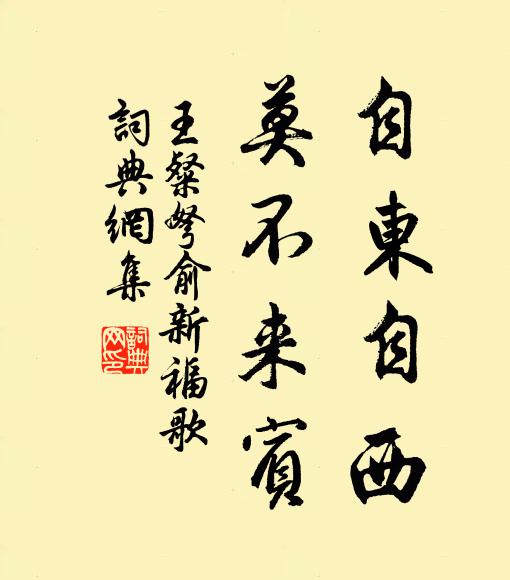 自東自西
莫不来賓
王粲弩俞新福歌
詞典網集
詞典网印